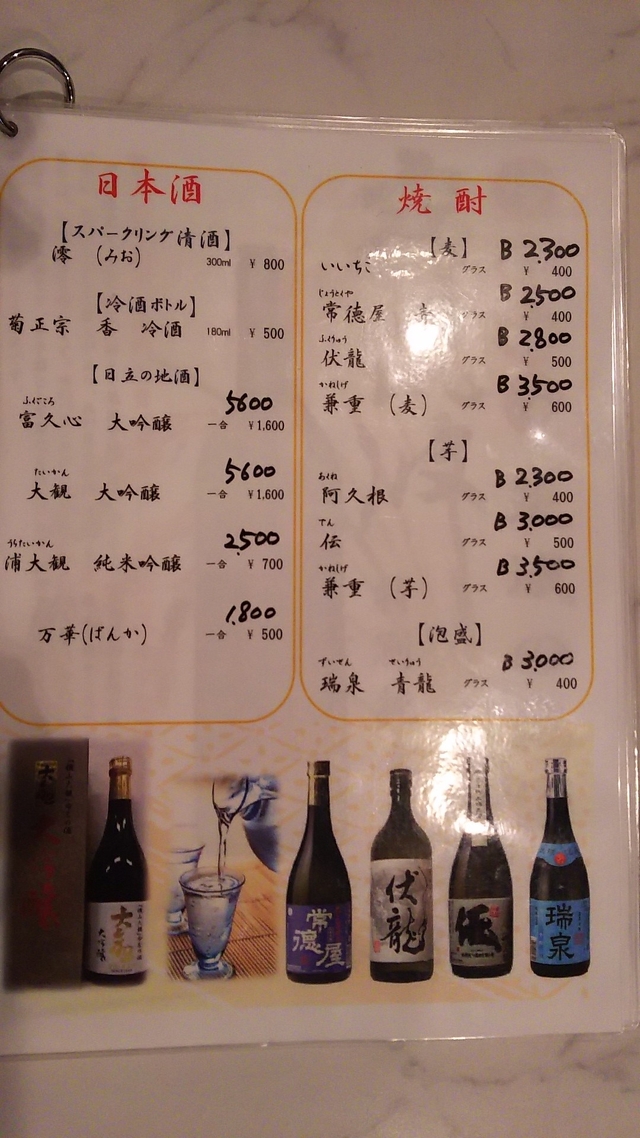 日本酒
【スパークリング清酒】
澪 (みお) 300ml ¥ 800
【冷酒ボトル】
菊正宗 香 冷酒 180ml ¥ 500
【日立の地酒】
ふくごころ 5600
富久心 大吟醸 一合 ¥1,600
たいかん 5600
大観 大吟醸 一合 ¥1,600
うらたいかん 2,500
浦大観 純米吟醸 一合 ¥ 700
1,800
万華(ばんか) 一合 ¥ 500
焼酎
【麦】 B 2,300
いいちこ グラス ¥ 400
じょうとくや B 2,500
常徳屋 グラス ¥ 400
ふくりゅう B 2,800
伏龍 グラス ¥ 500
かねしげ B 3,500
兼重 (麦) グラス ¥ 600
【芋】
あくね B 2,300
阿久根 グラス ¥ 400
でん B 3,000
伝 グラス ¥ 500
かねしげ B 3,500
兼重 (芋) グラス ¥ 600
【泡盛】
ずいせん せいりゅう B 3,000
瑞泉 青龍 グラス ¥ 400
大観
大吟醸
常徳屋
伏龍
瑞泉